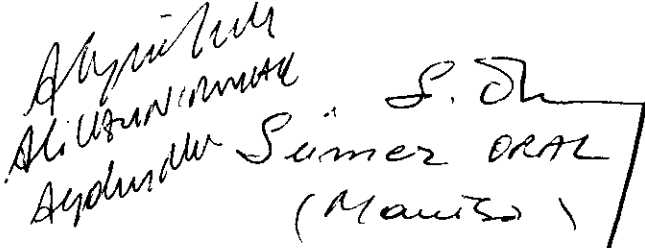 Ali UZUNIRMAK
Aydın
S. Oral
Sümer ORAL
(Manisa)